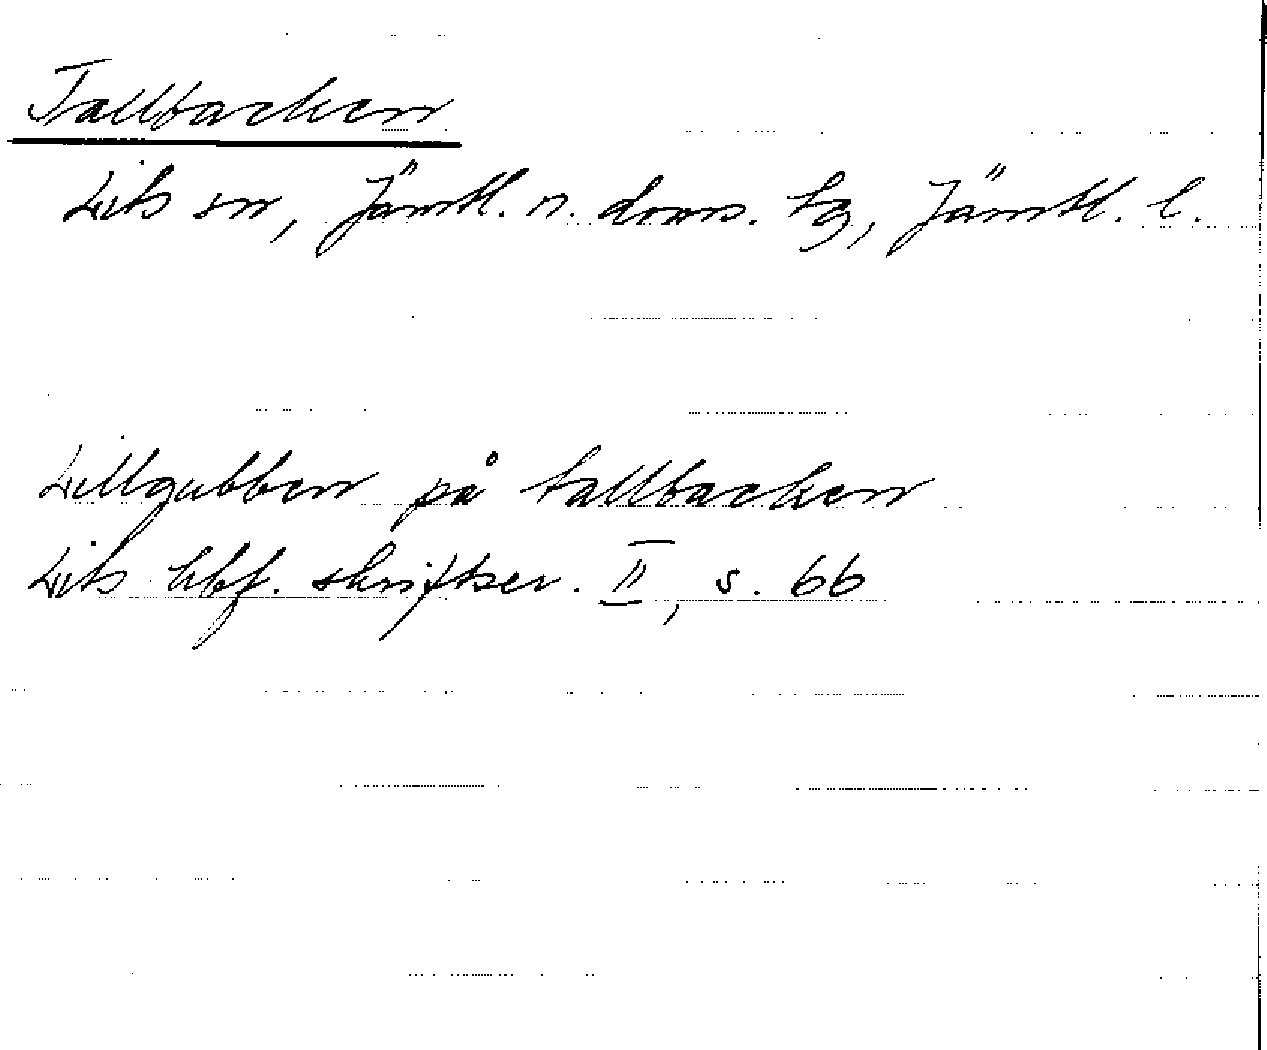 Tallbacken
Lits sn, Jämtl. n. doms. tg, Jämtl. l.
Lillgubben på tallbacken
Lits hbf. skriftser. II, s. 66